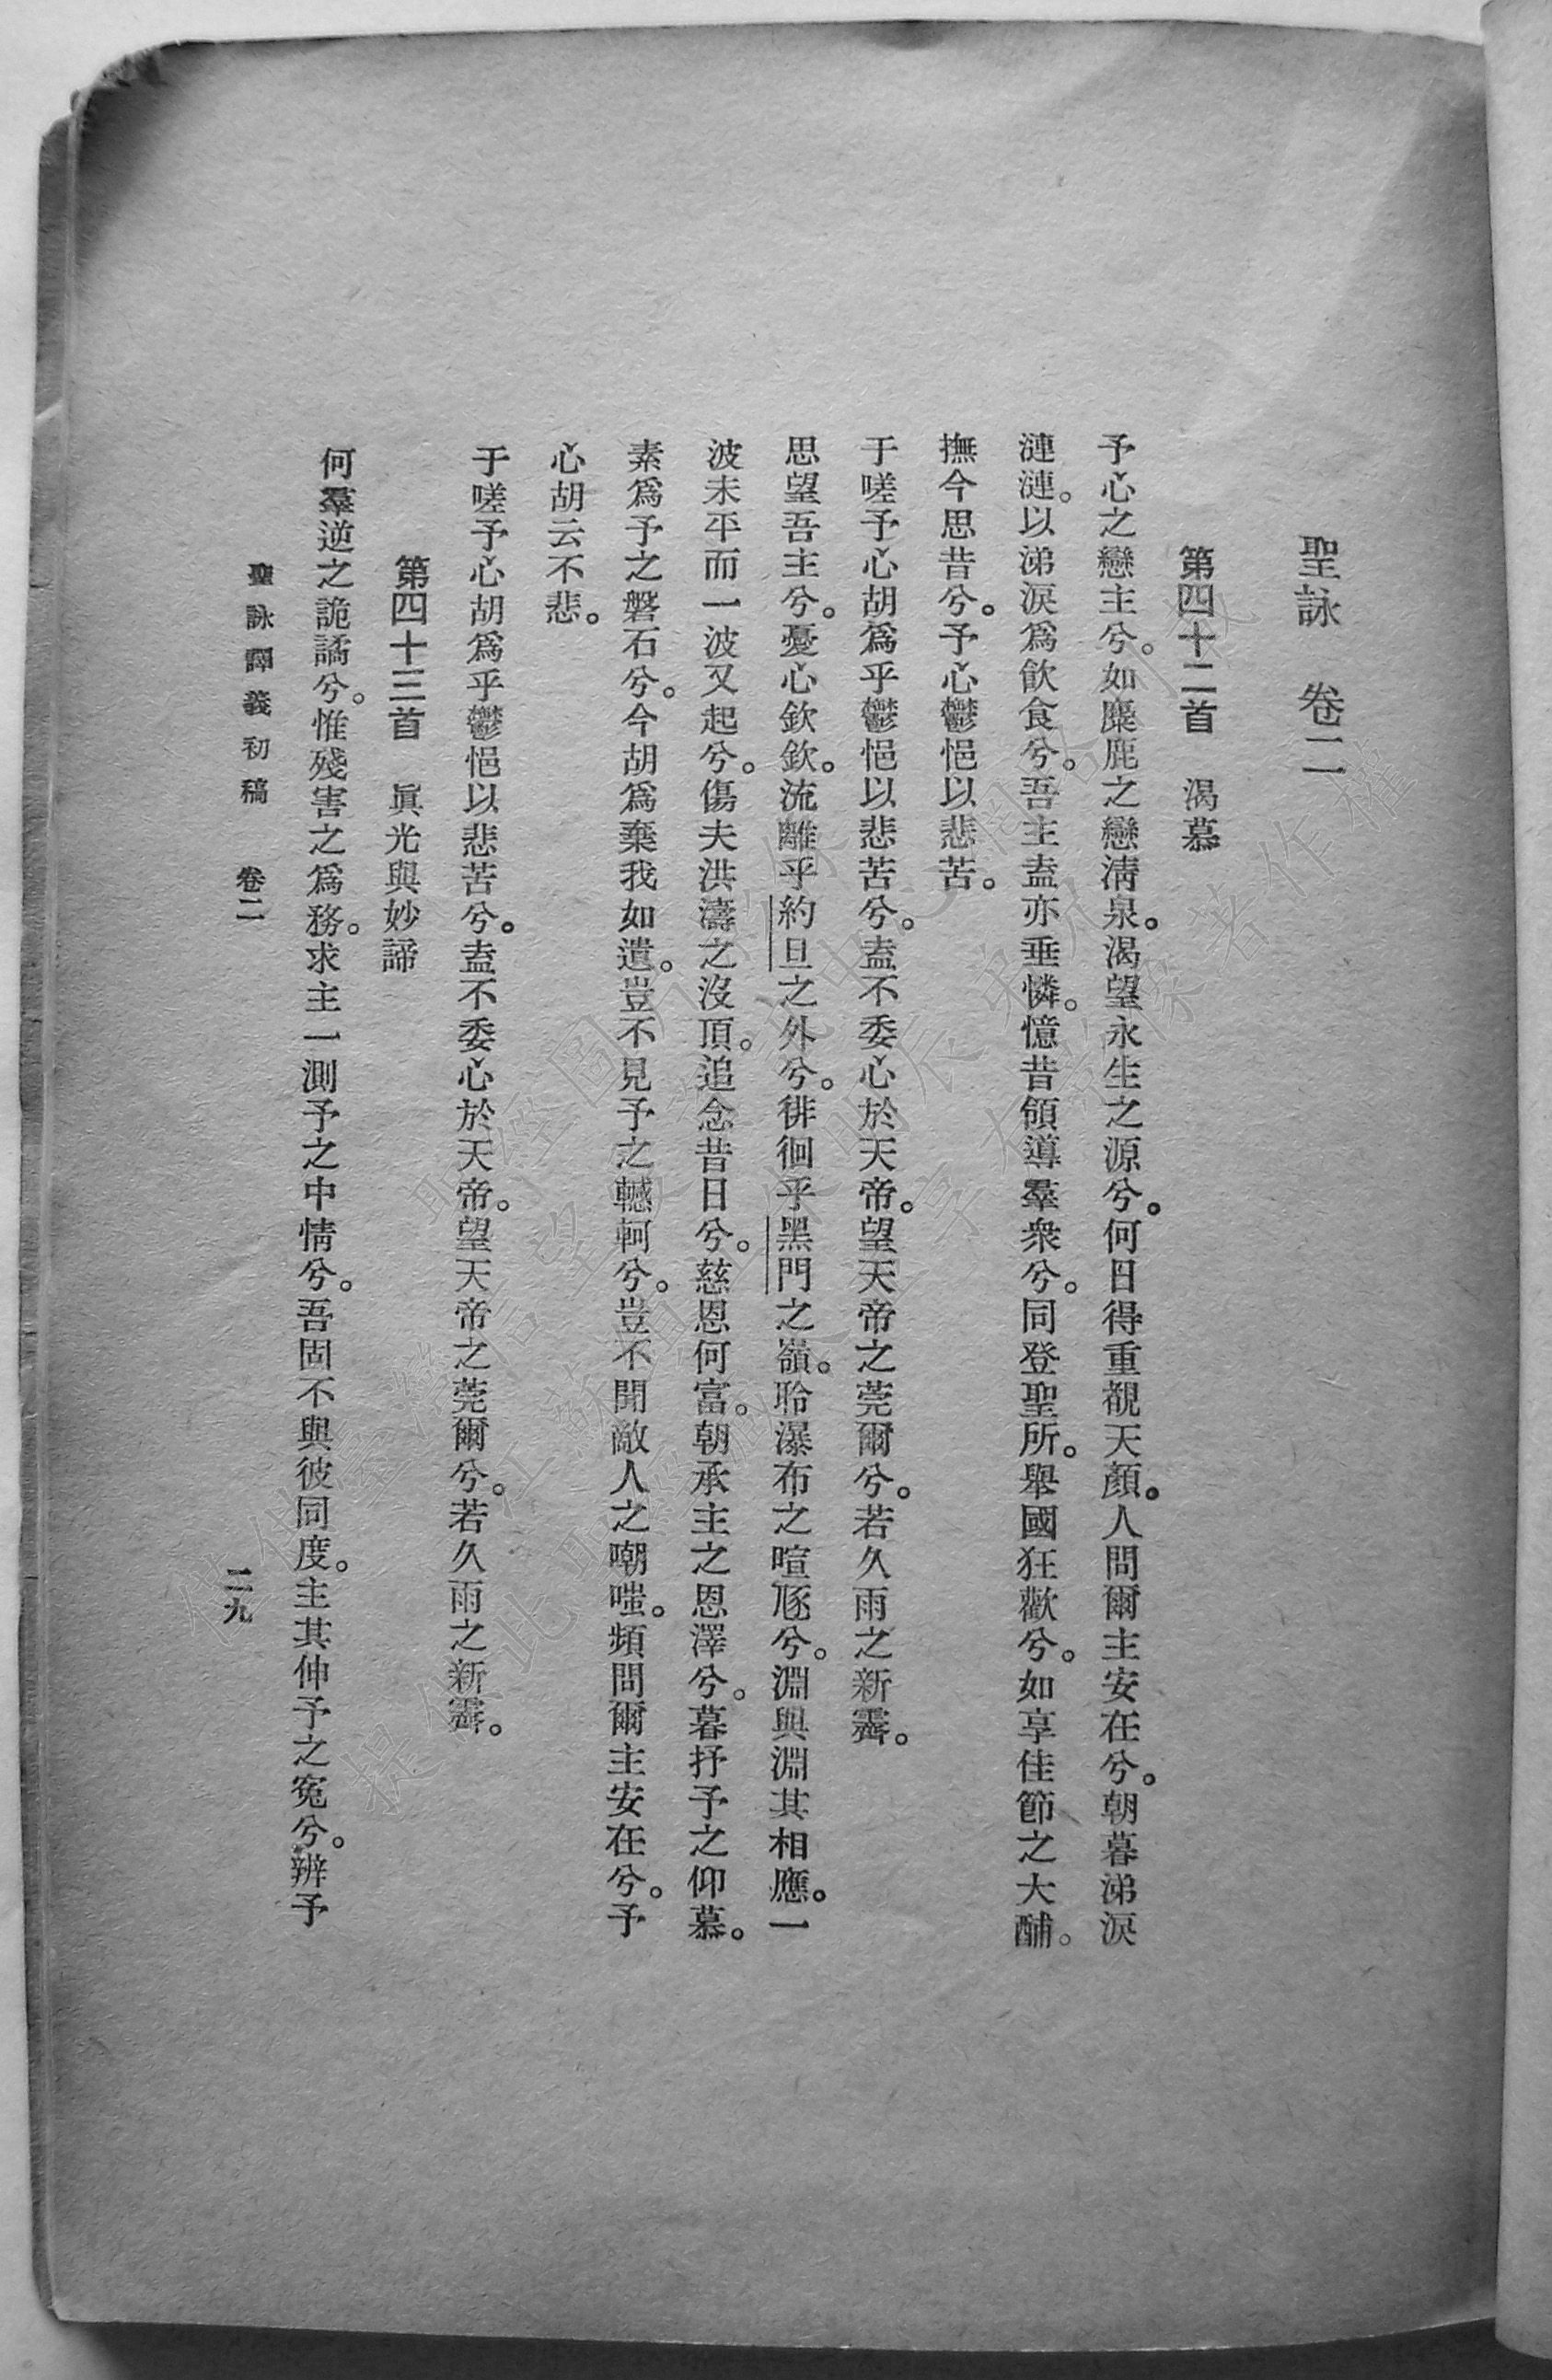 聖詠　卷二
第四十二首　渴慕
予心之戀主兮。如麋鹿之戀淸泉。渴望永生之源兮。何日得重覩天顏。人問爾主安在兮。朝暮涕淚
漣漣。以涕淚爲飮食兮。吾主盍亦垂憐。憶昔領導羣衆兮。同登聖所。舉國狂歡兮。如享佳節之大酺。
撫今思昔兮。予心鬱悒以悲苦。
于嗟予心胡爲乎鬱悒以悲苦兮。盍不委心於天帝。望天帝之莞爾兮。若久雨之新霽。
思望吾主兮。憂心欽欽。流離乎約旦之外兮。徘徊乎黑門之嶺。聆瀑布之喧豗兮。淵與淵其相應。一
波未平而一波又起兮。傷夫洪濤之沒頂。追念昔日兮。慈恩何富。朝承主之恩澤兮。暮抒予之仰慕。
素爲予之磐石兮。今胡爲棄我如遺。豈不見予之轗軻兮。豈不聞敵人之嘲嗤。頻問爾主安在兮。予
心胡云不悲。
于嗟予心胡爲乎鬱悒以悲苦兮。盍不委心於天帝。望天帝之莞爾兮。若久雨之新霽。
第四十三首　眞光與妙諦
何羣逆之詭譎兮。惟殘害之爲務。求主一測予之中情兮。吾固不與彼同度。主其伸予之寃兮。辨予
聖詠譯義初稿　卷二
二九